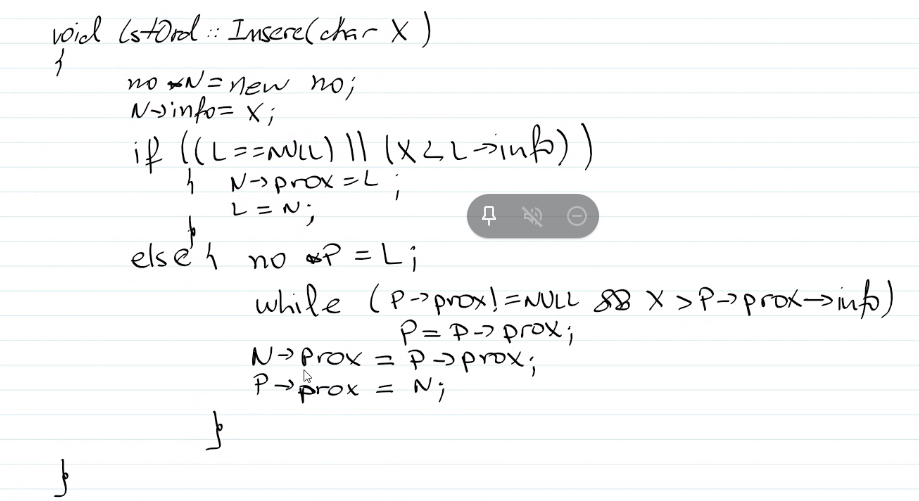 void LstOrd :: Insere(char X)
{
no *N = new no;
N->info = X;
if ((L==NULL) || (X < L->info))
{ N->prox = L;
L = N;
}
else { no *P = L;
while (P->prox != NULL && X > P->prox->info)
P = P->prox;
N->prox = P->prox;
P->prox = N;
}
}